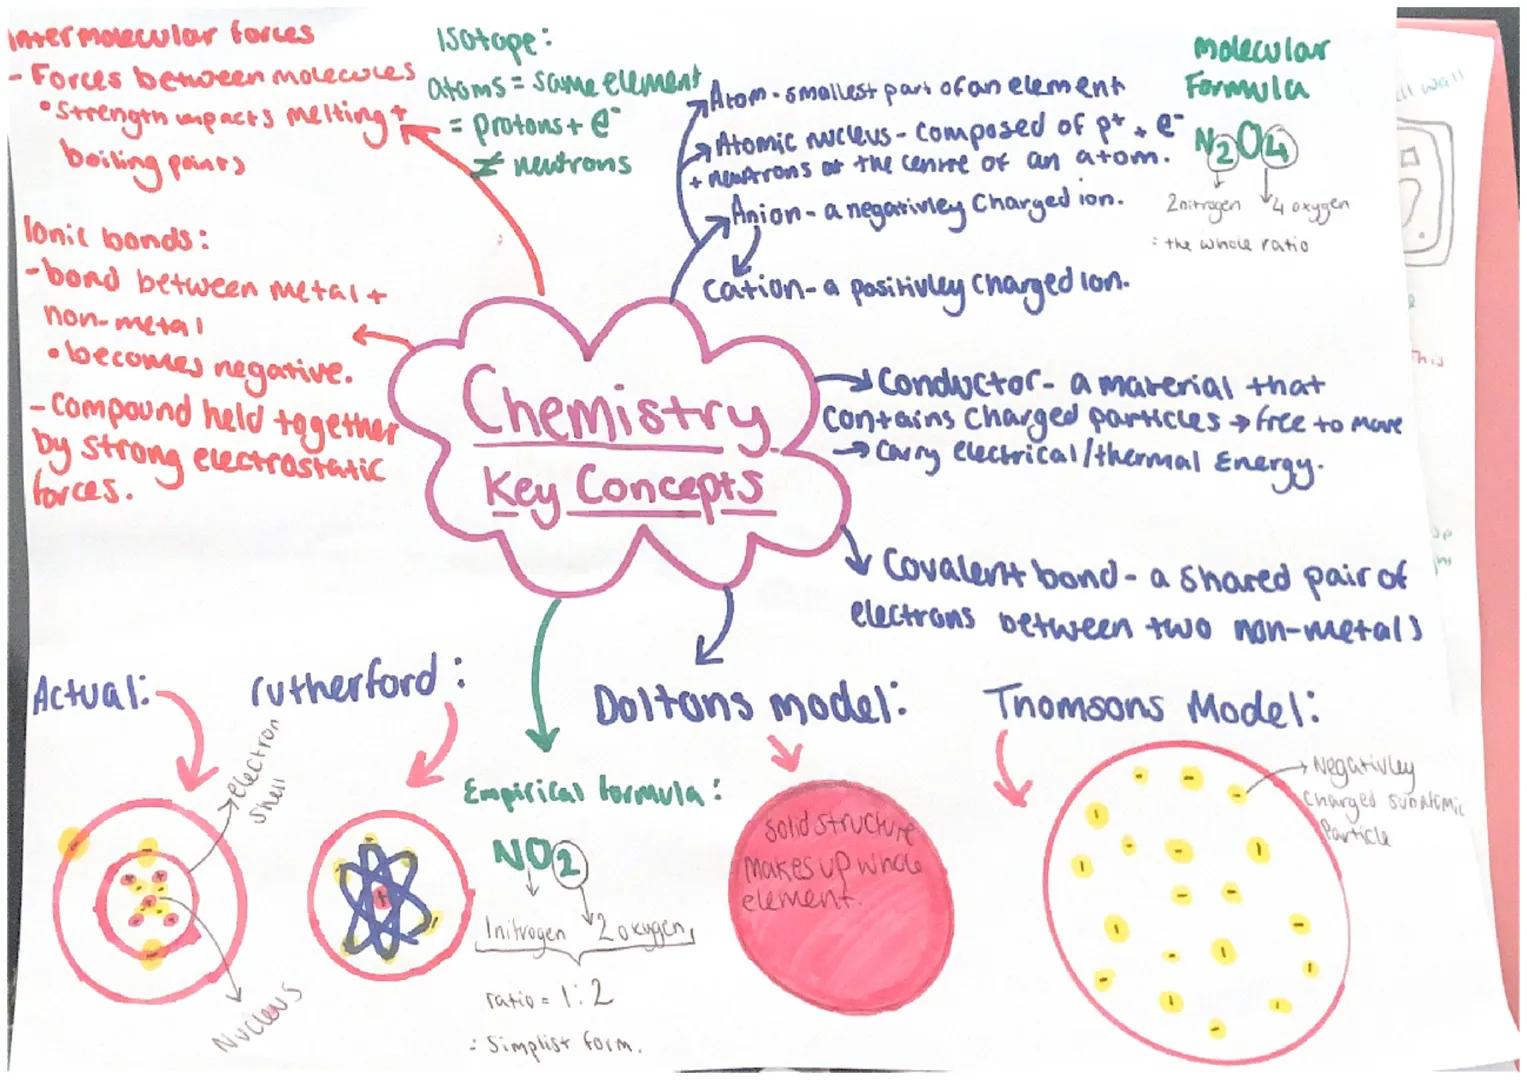 intermolecular forces
- Forces between molecules
• Strength impacts melting +
boiling points
Isotope:
atoms = same element
= protons + e⁻
≠ neutrons
Atom - smallest part of an element
Atomic nucleus - composed of p⁺ + e⁻
+ neutrons at the centre of an atom.
Anion - a negativley charged ion.
Cation - a positivley charged ion.
molecular
Formula
N2O4
2 nitrogen 4 oxygen
= the whole ratio
Ionic bonds:
- bond between metal +
non-metal
• becomes negative.
- Compound held together
by strong electrostatic
forces.
Chemistry
Key Concepts
Conductor - a material that
contains charged particles → free to move
→ Carry electrical/thermal Energy.
Covalent bond - a shared pair of
electrons between two non-metals
Actual:
electron
shell
Nucleus
rutherford:
+
Empirical formula:
NO2
1 nitrogen 2 oxygen
ratio = 1:2
= Simplist form.
Daltons model:
Solid structure
makes up whole
element.
Thomsons Model:
Negativley
Charged subatomic
Particle
ll wall
This